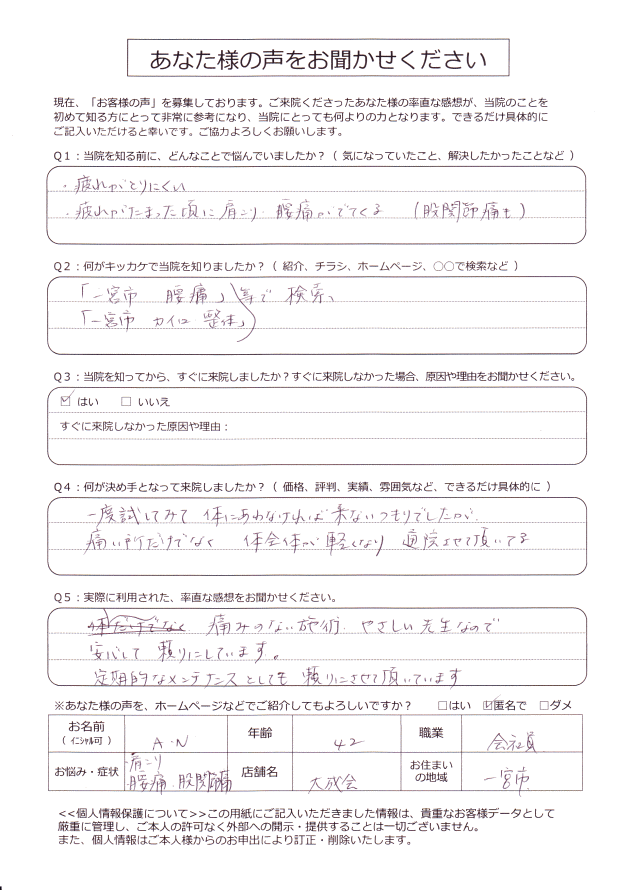 あなた様の声をお聞かせください
現在、「お客様の声」を募集しております。ご来院くださったあなた様の率直な感想が、当院のことを
初めて知る方にとって非常に参考になり、当院にとっても何よりの力となります。できるだけ具体的に
ご記入いただけると幸いです。ご協力よろしくお願いします。
Q1：当院を知る前に、どんなことで悩んでいましたか？（ 気になっていたこと、解決したかったことなど ）
・疲れがとりにくい
・疲れがたまった頃に肩こり・腰痛がでてくる （股関節痛も）
Q2：何がキッカケで当院を知りましたか？（ 紹介、チラシ、ホームページ、○○で検索など ）
「一宮市 腰痛」等で 検索、
「一宮市 カイロ 整体」
Q3：当院を知ってから、すぐに来院しましたか？すぐに来院しなかった場合、原因や理由をお聞かせください。
☑ はい □ いいえ
すぐに来院しなかった原因や理由：
Q4：何が決め手となって来院しましたか？（ 価格、評判、実績、雰囲気など、できるだけ具体的に ）
一度試してみて 体にあわなければ 来ないつもりでしたが、
痛い所だけでなく 体全体が 軽くなり 通院させて頂いてる
Q5：実際に利用された、率直な感想をお聞かせください。
体だけでなく 痛みのない施術・やさしい先生なので
安心して 頼りにしています。
定期的なメンテナンスとしても 頼りにさせて頂いています
※あなた様の声を、ホームページなどでご紹介してもよろしいですか？ □はい ☑匿名で □ダメ
お名前
（ｲﾆｼｬﾙ可） A・N 年齢 42 職業 会社員
お悩み・症状 肩こり
腰痛・股関節痛 店舗名 大成会 お住まい
の地域 一宮市
<<個人情報保護について>>この用紙にご記入いただきました情報は、貴重なお客様データとして
厳重に管理し、ご本人の許可なく外部への開示・提供することは一切ございません。
また、個人情報はご本人様からのお申出により訂正・削除いたします。